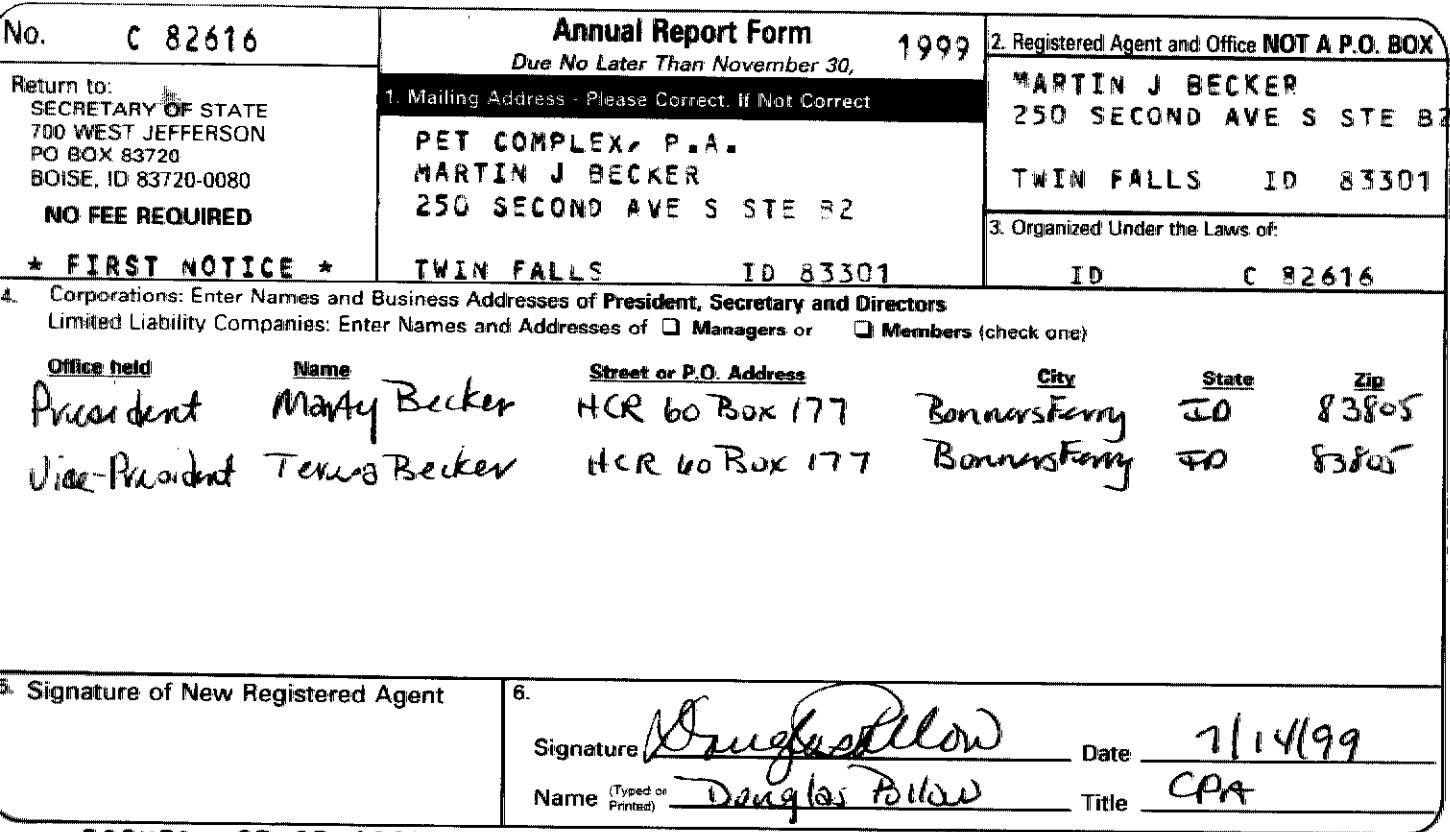 No. C 82616
Return to:
SECRETARY OF STATE
700 WEST JEFFERSON
PO BOX 83720
BOISE, ID 83720-0080
NO FEE REQUIRED
* FIRST NOTICE *
Annual Report Form 1999
Due No Later Than November 30,
1. Mailing Address - Please Correct, If Not Correct
PET COMPLEX, P.A.
MARTIN J BECKER
250 SECOND AVE S STE B2
TWIN FALLS ID 83301
2. Registered Agent and Office NOT A P.O. BOX
MARTIN J BECKER
250 SECOND AVE S STE B2
TWIN FALLS ID 83301
3. Organized Under the Laws of:
ID C 82616
4. Corporations: Enter Names and Business Addresses of President, Secretary and Directors
Limited Liability Companies: Enter Names and Addresses of ☐ Managers or ☐ Members (check one)
Office held Name Street or P.O. Address City State Zip
President Marty Becker HCR 60 Box 177 Bonners Ferry ID 83805
Vice-President Teresa Becker HCR 60 Box 177 Bonners Ferry ID 83805
5. Signature of New Registered Agent
6.
Signature Date 7/14/99
Name (Typed or Printed) Douglas Title CPA